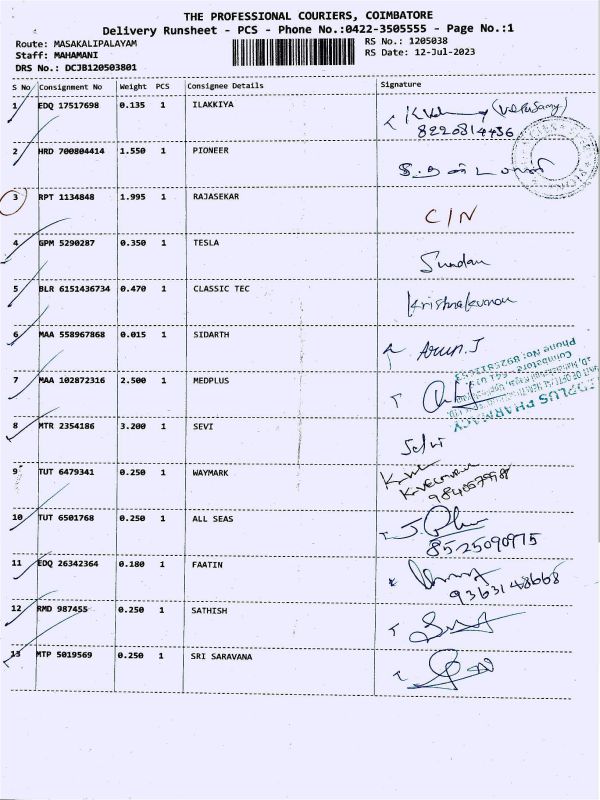 THE PROFESSIONAL COURIERS, COIMBATORE
Delivery Runsheet - PCS - Phone No.:0422-3505555 - Page No.:1
Route: MASAKALIPALAYAM
RS No.: 1205038
Staff: MAHAMANI
RS Date: 12-Jul-2023
DRS No.: DCJB120503801
S No Consignment No Weight PCS Consignee Details Signature
1 EDQ 17517698 0.135 1 ILAKKIYA
8220814436
2 HRD 700804414 1.550 1 PIONEER
3 RPT 1134848 1.995 1 RAJASEKAR C/N
4 GPM 5290287 0.350 1 TESLA Sundar
5 BLR 6151436734 0.470 1 CLASSIC TEC Krishnakumar
6 MAA 558967868 0.015 1 SIDARTH Arun.J
7 MAA 102872316 2.500 1 MEDPLUS
MEDPLUS PHARMACY
8 MTR 2354186 3.200 1 SEVI Selvi
9 TUT 6479341 0.250 1 WAYMARK
10 TUT 6501768 0.250 1 ALL SEAS
8525090975
11 EDQ 26342364 0.180 1 FAATIN
9363148668
12 RMD 987455 0.250 1 SATHISH
13 MTP 5019569 0.250 1 SRI SARAVANA